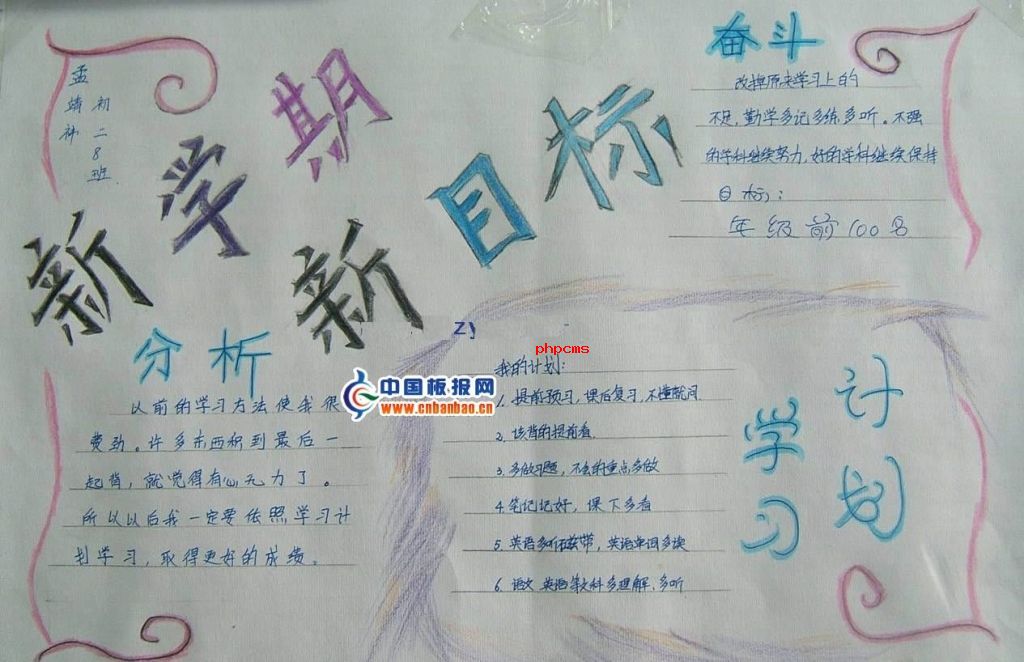 新学期
新目标
孟靖
初二8班
奋斗
改掉原来学习上的
不足，勤学多记多练多听。不强
的学科继续努力，好的学科继续保持
目标：
年级前100名
分析
以前的学习方法使我很
费劲。许多东西积到最后一
起背，就觉得有心无力了。
所以以后我一定要依照学习计
划学习，取得更好的成绩。
学习
计划
我的计划：
1. 提前预习，课后复习，不懂就问
2. 该背的提前看
3. 多做习题，不会的重点多做
4. 笔记记好，课下多看
5. 英语多听磁带，英语单词多读
6. 语文 英语等文科多理解、多听
Zy
phpcms
中国板报网
www.cnbanbao.cn